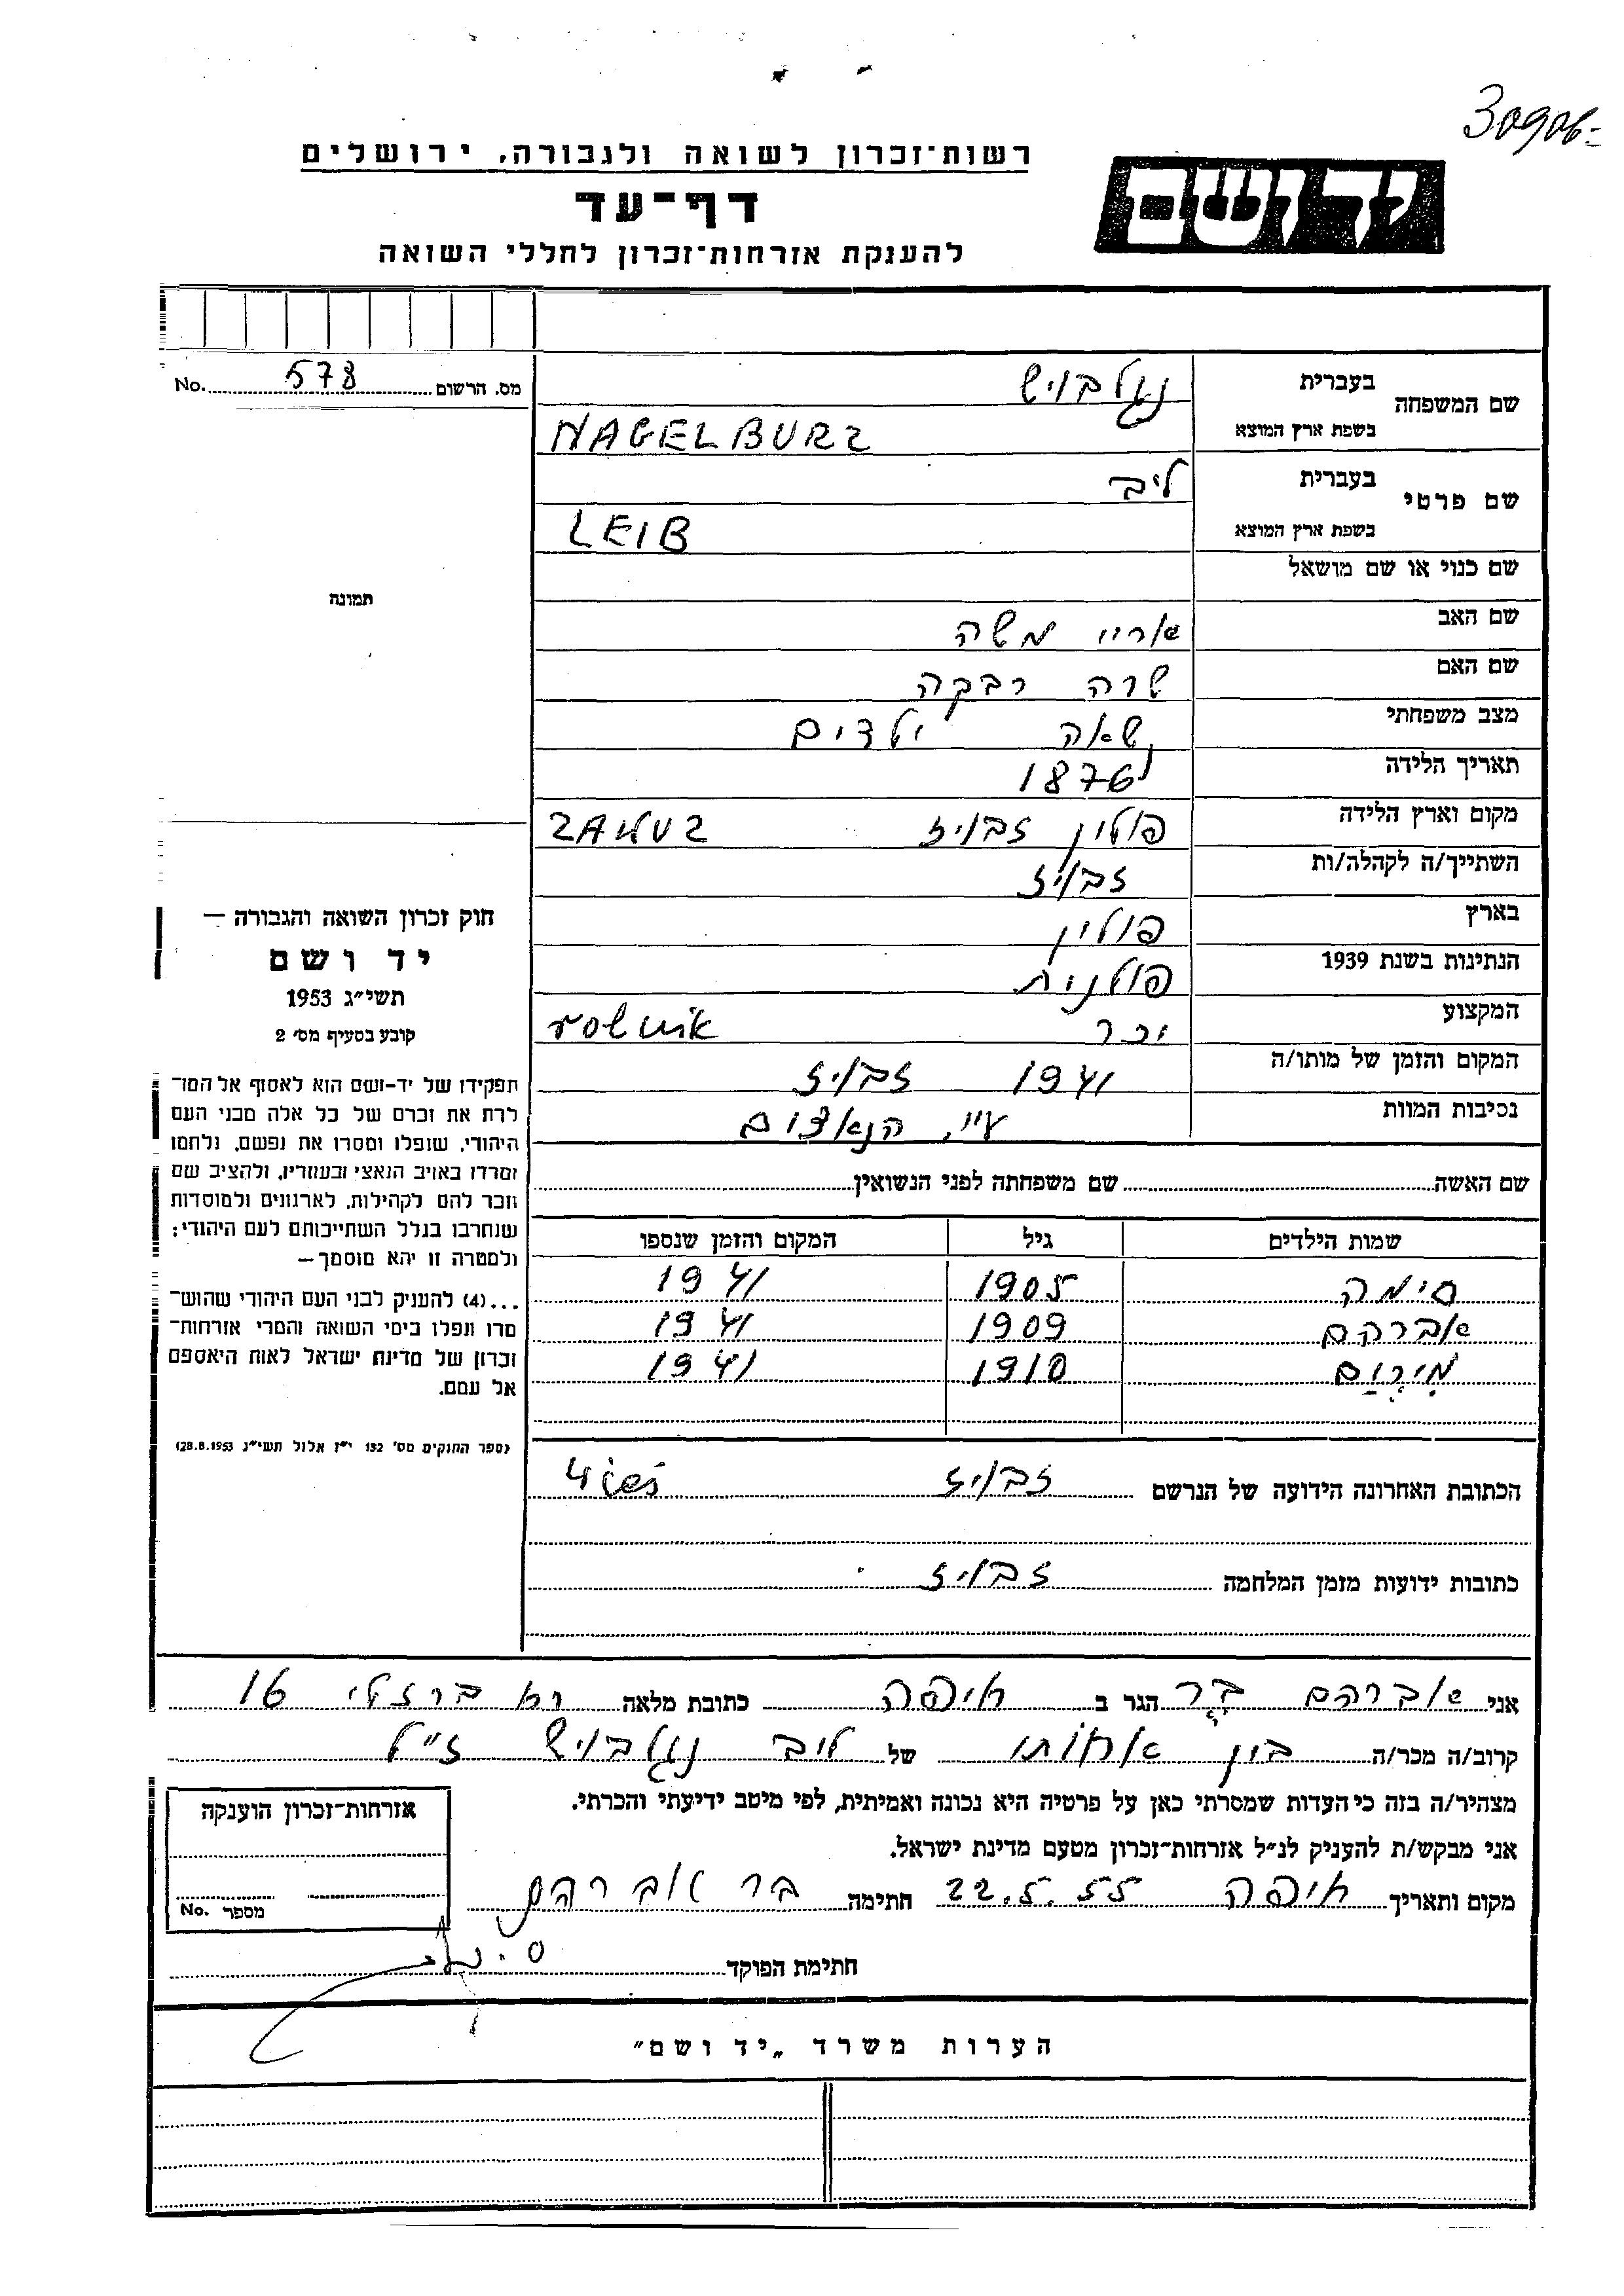 רשות־זכרון לשואה ולגבורה, ירושלים
דף־עד
להענקת אזרחות־זכרון לחללי השואה
יד ושם
מס. הרשום 578 No.
שם המשפחה
בעברית נגלבויש
בשפת ארץ המוצא NAGELBURZ
שם פרטי
בעברית ליב
בשפת ארץ המוצא LEIB
שם כנוי או שם מושאל
שם האב משה
שם האם שרה רבקה
מצב משפחתי ילדים
תאריך הלידה 1876
מקום וארץ הלידה פולין זבויז
השתייך/ה לקהלה/ות זבויז
בארץ פולין
הנתינות בשנת 1939 פולנית
המקצוע rolnik
המקום והזמן של מותו/ה 1941 זבויז
נסיבות המוות ע״י הנאצים
תמונה
חוק זכרון השואה והגבורה –
יד ושם
תשי״ג 1953
קובע בסעיף מס׳ 2
תפקידו של יד-ושם הוא לאסוף אל המו־
לדת את זכרם של כל אלה מבני העם
היהודי, שנפלו ומסרו את נפשם, נלחמו
ומרדו באויב הנאצי ובעוזריו, ולהציב שם
וזכר להם לקהילות, לארגונים ולמוסדות
שנחרבו בגלל השתייכותם לעם היהודי;
ולמטרה זו יהא מוסמך–
...(4) להעניק לבני העם היהודי שהוש־
מדו ונפלו בימי השואה והמרי אזרחות־
זכרון של מדינת ישראל לאות היאספם
אל עמם.
(ספר החוקים מס׳ 132 י״ז אלול תשי״ג 28.8.1953)
שם האשה שם משפחתה לפני הנשואין
שמות הילדים גיל המקום והזמן שנספו
סימה 1905 1941
אברהם 1909 1941
מירום 1910 1941
הכתובת האחרונה הידועה של הנרשם זבויז wieś
כתובות ידועות מזמן המלחמה זבויז
אני אברהם בר הגר ב חיפה כתובת מלאה ברזילי 16
קרוב/ה מכר/ה בין אחותו של ליב נגלבויש ז״ל
מצהיר/ה בזה כי העדות שמסרתי כאן על פרטיה היא נכונה ואמיתית, לפי מיטב ידיעתי והכרתי.
אני מבקש/ת להעניק לנ״ל אזרחות־זכרון מטעם מדינת ישראל.
מקום ותאריך חיפה 22.5.55 חתימה בר אברהם
חתימת הפוקד
אזרחות־זכרון הוענקה
מספר No.
הערות משרד „יד ושם״